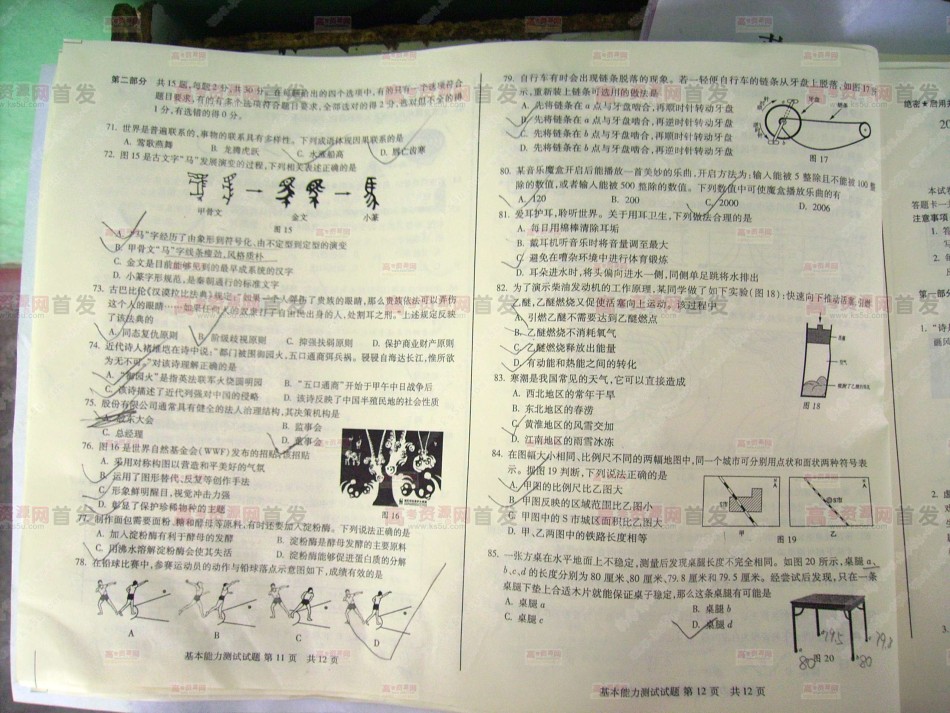 第二部分 共15题,每题2分,共30分。在每题给出的四个选项中,有的只有一个选项符合
题目要求,有的有多个选项符合题目要求,全部选对的得2分,选对但不全的得
1分,有选错的得0分。
71. 世界是普遍联系的,事物的联系具有多样性。下列成语体现因果联系的是
A. 莺歌燕舞 B. 龙腾虎跃 C. 水涨船高 D. 唇亡齿寒
72. 图15是古文字“马”发展演变的过程,下列相关表述正确的是
甲骨文 金文 小篆
图15
A. “马”字经历了由象形到符号化、由不定型到定型的演变
B. 甲骨文“马”字线条瘦劲,风格质朴
C. 金文是目前能够见到的最早成系统的汉字
D. 小篆字形规范,是秦朝通行的标准文字
73. 古巴比伦《汉谟拉比法典》规定:“如果一个人弄伤了贵族的眼睛,那么贵族依法可以弄伤
这个人的眼睛……如果任何人的奴隶打了自由民出身的人,处割耳之刑。”上述规定反映
了该法典的
A. 同态复仇原则 B. 阶级歧视原则 C. 抑强扶弱原则 D. 保护商业财产原则
74. 近代诗人褚维垲在诗中说:“都门被围御园火,五口通商弭兵祸。骎骎自海达长江,惟所欲
为无不可。”对该诗理解正确的是
A. “御园火”是指英法联军火烧圆明园 B. “五口通商”开始于甲午中日战争后
C. 该诗描述了近代列强对中国的侵略 D. 该诗反映了中国半殖民地的社会性质
75. 股份有限公司通常具有健全的法人治理结构,其决策机构是
A. 股东大会 B. 监事会
C. 总经理 D. 董事会
76. 图16是世界自然基金会(WWF)发布的招贴,该招贴
A. 采用对称构图以营造和平美好的气氛
B. 运用了图形替代、反复等创作手法
C. 形象鲜明醒目,视觉冲击力强
D. 彰显了保护珍稀物种的主题
图16
77. 制作面包需要面粉、糖和酵母等原料,有时还要加入淀粉酶。下列说法正确的是
A. 加入淀粉酶有利于酵母的发酵 B. 淀粉酶是酵母发酵的主要原料
C. 用沸水溶解淀粉酶会使其失活 D. 淀粉酶能够促进蛋白质的分解
78. 在铅球比赛中,参赛运动员的动作与铅球落点示意图如下,成绩有效的是
A B C D
基本能力测试试题 第11页 共12页
79. 自行车有时会出现链条脱落的现象。若一轻便自行车的链条从牙盘上脱落,如图17所
示,重新装上链条可选用的做法是
A. 先将链条在a点与牙盘啮合,再顺时针转动牙盘
B. 先将链条在a点与牙盘啮合,再逆时针转动牙盘
C. 先将链条在b点与牙盘啮合,再顺时针转动牙盘
D. 先将链条在b点与牙盘啮合,再逆时针转动牙盘
牙盘 链条
图17
80. 某音乐魔盒开启后能播放一首美妙的乐曲,开启方法为:输入能被5整除且不能被100整
除的数值,或者输入能被500整除的数值。下列数值中可使魔盒播放乐曲的有
A. 120 B. 200 C. 2000 D. 2006
81. 爱耳护耳,聆听世界。关于用耳卫生,下列做法合理的是
A. 每日用棉棒清除耳垢
B. 戴耳机听音乐时将音量调至最大
C. 避免在嘈杂环境中进行体育锻炼
D. 耳朵进水时,将头偏向进水一侧,同侧单足跳将水排出
82. 为了演示柴油发动机的工作原理,某同学做了如下实验(图18):快速向下推动活塞,引燃
乙醚,乙醚燃烧又促使活塞向上运动。该过程中
A. 引燃乙醚不需要达到乙醚燃点
B. 乙醚燃烧不消耗氧气
C. 乙醚燃烧释放出能量
D. 有动能和热能之间的转化
图18
83. 寒潮是我国常见的天气,它可以直接造成
A. 西北地区的常年干旱
B. 东北地区的春涝
C. 黄淮地区的风雪交加
D. 江南地区的雨雪冰冻
84. 在图幅大小相同、比例尺不同的两幅地图中,同一个城市可分别用点状和面状两种符号表
示。据图19判断,下列说法正确的是
A. 甲图的比例尺比乙图大
B. 甲图反映的区域范围比乙图小
C. 甲图中的S市城区面积比乙图大
D. 甲、乙两图中的铁路长度相等
甲 图19 乙
85. 一张方桌在水平地面上不稳定,测量后发现桌腿长度不完全相同。如图20所示,桌腿a、
b、c、d的长度分别为80厘米、80厘米、79.8厘米和79.5厘米。经尝试后发现,只在一条
桌腿下垫上合适木片就能保证桌子稳定,那么这条桌腿有可能是
A. 桌腿a B. 桌腿b
C. 桌腿c D. 桌腿d
79.5 79.8
80 图20 80
基本能力测试试题 第12页 共12页
绝密★启用前
注意事项